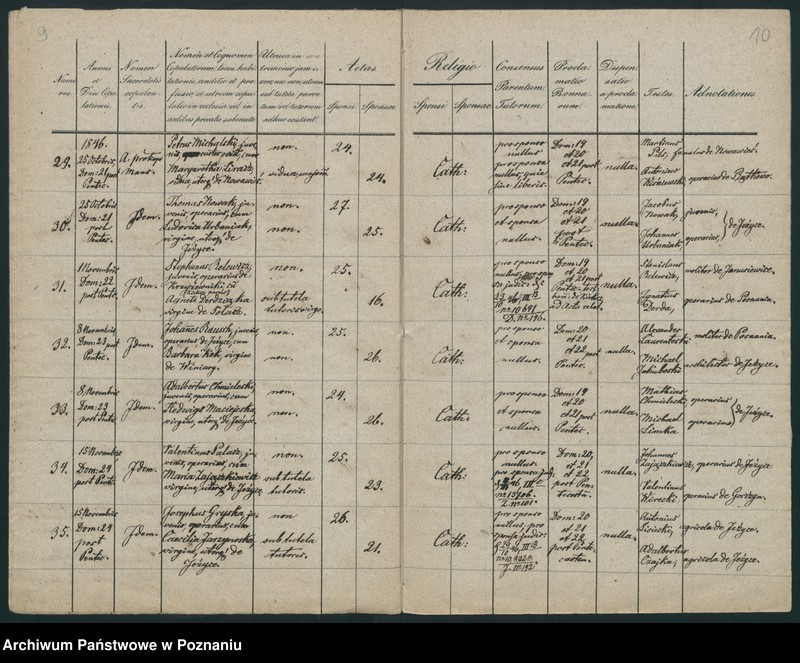 9
10
Numerus
Annus et Dies Copulationis
Nomen Sacerdotis copulantis
Nomen et Cognomen Copulatorum, locus habitationis, conditio et professio, et utrum copulatio in ecclesia vel in aedibus privatis
Utrum in matrimonio jam vel non, utrum sub tutela parentum vel tutorum adhuc existant
Aetas
Sponsi
Sponsae
Religio
Sponsi
Sponsae
Consensus Parentum, Tutorum
Proclamatio Bannorum
Dispensatio a proclamatione
Testes
Adnotationes
29.
1846.
25 Octobris,
Dom: 21 post
Pentec.
A. prokop
Mans.
Petrus Michalski, juve
nis,
cum
Margaretha
vidua, utorq de Nowawieś
non.
vidua, majoris
24.
24.
Cath:
pro sponso
nullus
pro sponsa
nullus, quia
fine liberis.
Dom: 19
et 20
et 21 post
Pentec.
nulla.
Martinus
famulus de Nowawieś.
Antonius
Wiśniewski,
operarius de
30.
25 Octobris
Dom: 21
post
Pentec.
Idem.
Thomas Nowak, ju
venis, operarius, cum
Ludovica Urbaniak,
virgine, utorq de
Jeżyce.
non.
non.
27.
25.
Cath:
pro sponso
et sponsa
nullus.
Dom: 19
et 20
et 21
post
Pentec.
nulla.
Jacobus
Nowak,
juvenis,
Johannes
Urbaniak,
operarius,
de Jeżyce.
31.
1 Novembris
Dom: 22
post Pente.
Idem.
Stephanus Relewicz,
juvenis, operarius de
Agnete
virgine de Solacz.
non.
sub tutela
tutoris virgo.
25.
16.
Cath:
pro sponso
nullus, pro spon
sa judic: de
46, III B
No 10641
Dom: 19
et 20
et 21 post
Pentec.
nulla.
Stanislaus
Relewicz,
molitor de
Ignatius
Derda,
operarius de Posnania.
32.
8 Novembris
Dom: 23 post
Pentec.
Idem.
Johanes Rausch, juvenis
operarius de Jeżyce, cum
Barbara Kek, virgine
de Winiary.
non.
non.
25.
26.
Cath:
pro sponso
et sponsa
nullus.
Dom: 20
et 21
et 22 post
Pentec.
nulla.
Alexander
molitor de Posnania.
Michael
Jakubowski
de Jeżyce.
33.
8 Novembris
Dom: 23
post Pente.
Idem.
Adalbertus Chmielewski,
juvenis, operarius, cum
Hedwige Maciejewska,
virgine, utorq de Jeżyce.
non.
non.
24.
26.
Cath:
pro sponso
et sponsa
nullus.
Dom: 19
et 20
et 21 post
Pentec.
nulla.
Mathias
Chmielewski,
operarius
Michael
Limka
operarius
de Jeżyce.
34.
15 Novembris
Dom: 24
post Pente.
Idem.
Valentinus Palacz, ju
venis, operarius, cum
Maria Zajączkiewicz
virgine, utorq de Jeżyce
non.
sub tutela
tutoris.
25.
23.
Cath:
pro sponso
nullus.
pro sponsa jud.
46, III
No 13706.
J. No 101.
Dom: 20,
et 21
et 22
post Pen
tecostn
nulla.
Johannes
Zajączkiewicz,
operarius de Jeżyce.
Valentinus
operarius de
35.
15 Novembris
Dom: 24
post
Pentec.
Idem.
Josephus Gryska, ju
venis, operarius, cum
Caecilia
virgine, utorq de
Jeżyce.
non
sub tutela
tutoris.
26.
21.
Cath:
pro sponso
nullus, pro
sponsa judic:
46, III B
J. No 192.
Dom: 20
et 21
et 22.
post Pente
costen.
nulla.
Antonius
Lisiecki,
agricola de Jeżyce.
Adalbertus
Czajka,
agricola de Jeżyce.
Archiwum Państwowe w Poznaniu